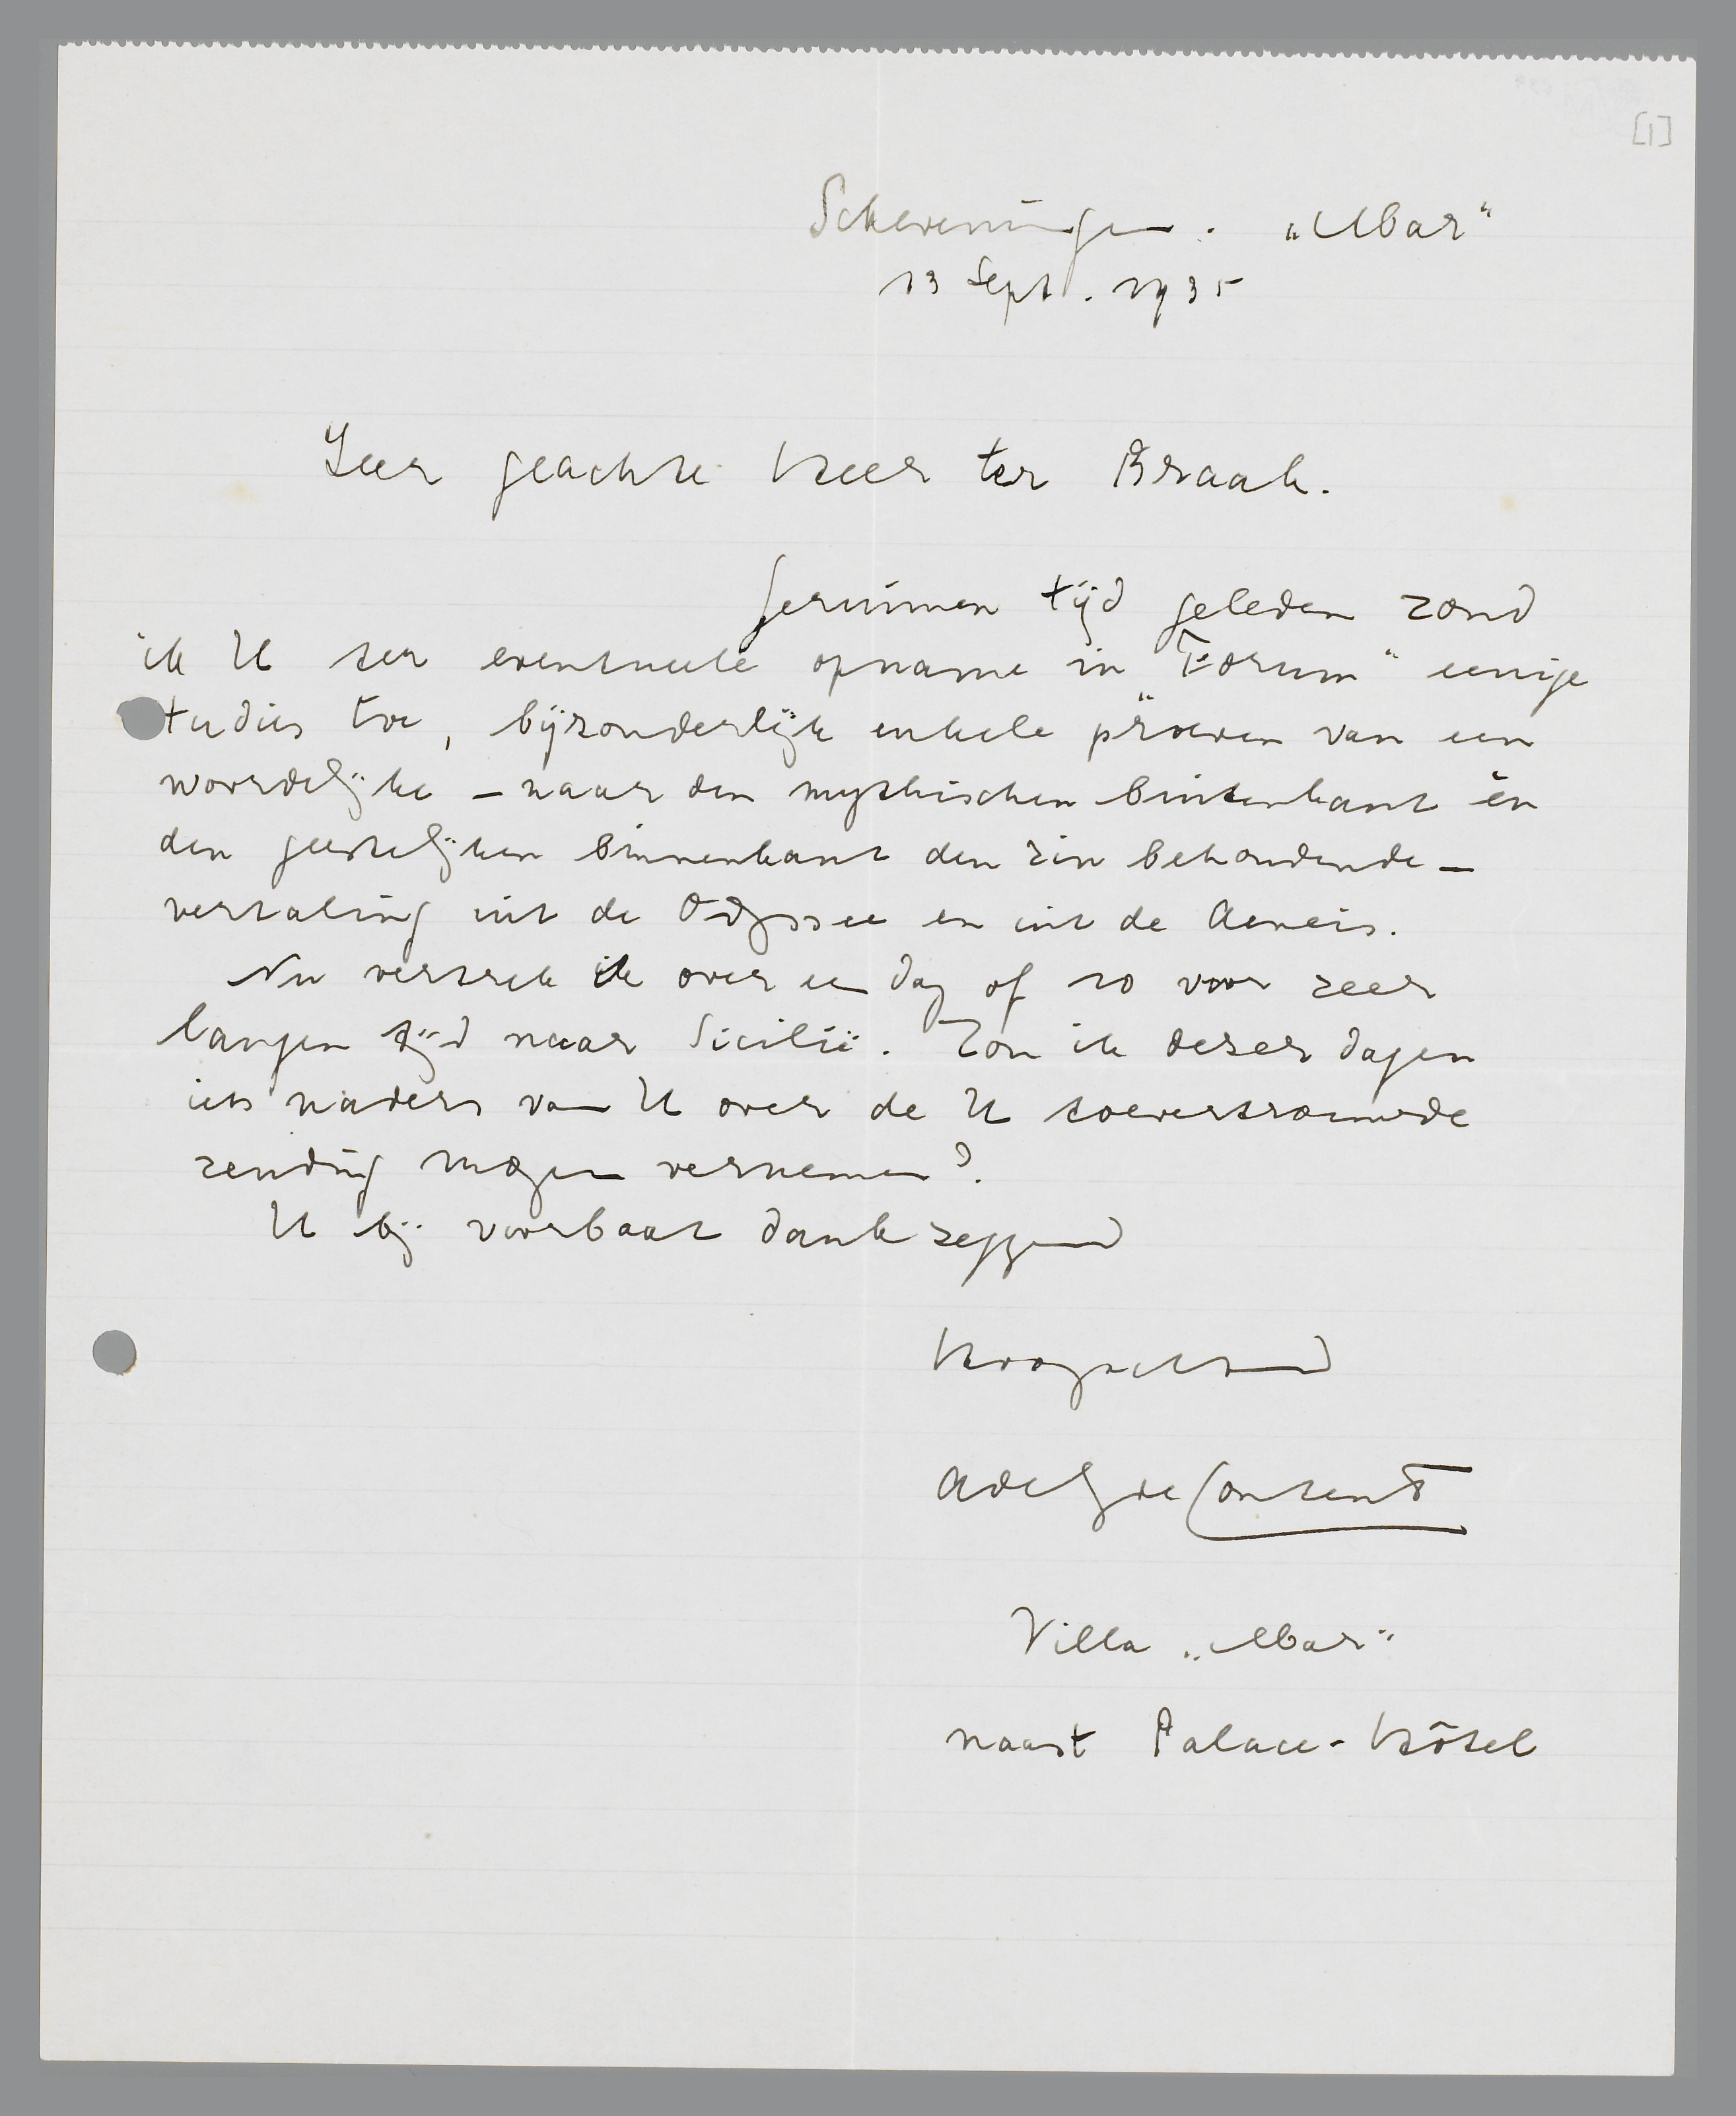 [1]
Scheveningen. „Ubar"
13 Sept. 1935
Zeer geachte Heer ter Braak.
Geruimen tijd geleden zond
ik U ter eventueele opname in "Forum" eenige
tudies toe, bijzonderlijk enkele "proeven van een
woordelijke – naar den mythischen buitenkant èn
den geestelijken binnenkant den zin behoudende –
vertaling uit de Odyssee en uit de Aeneis.
Nu vertrek ik over een dag of 10 voor zeer
langen tijd naar Sicilië. Zou ik dezer dagen
iets naders van U over de U toevertrouwde
zending mogen vernemen?
U bij voorbaat dank zeggend
Hoogachtend
Adolf de Constant
Villa „Ubar"
naast Palace-Hôtel